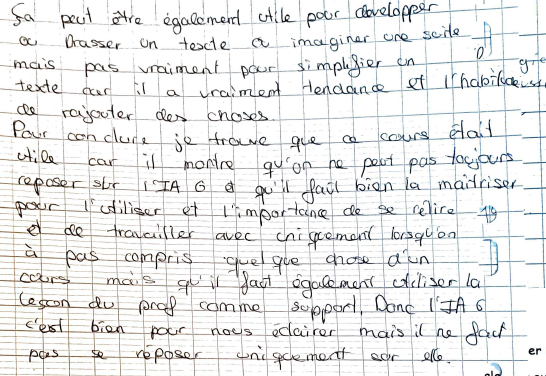 Sa peut être également utile pour developper
ou brasser un texte a imaginer une suite
mais pas vraiment pour simplifier un
texte car il a vraiment tendance et l'habitude
de rajouter des choses.
Pour conclure je trouve que ce cours était
utile car il montre qu'on ne peut pas toujours
reposer sur l'IA G et qu'il faut bien la maitriser
pour l'utiliser et l'importance de se relire
et de travailler avec uniquement lorsqu'on
à pas compris quelque chose d'un
cours mais qu'il faut également utiliser la
leçon du prof comme support. Donc l'IA G
c'est bien pour nous éclairer mais il ne faut
pas se réposer uniquement sur elle.
er